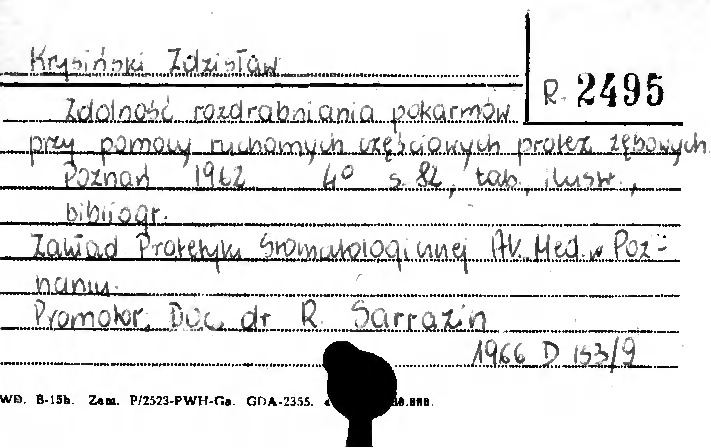 Krysiński Zdzisław
R. 2495
Zdolność rozdrabniania pokarmów
przy pomocy ruchomych częściowych protez zębowych
Poznań 1962 4° s. 82, tab., ilustr.,
bibliogr.
Zakład Protetyki Stomatologicznej Ak. Med. w Poz-
naniu.
Promotor: Doc. dr R. Sarrazin
1966 D 153/9
WD. B-15b. Zam. P/2523-PWH-Ga. GDA-2355.